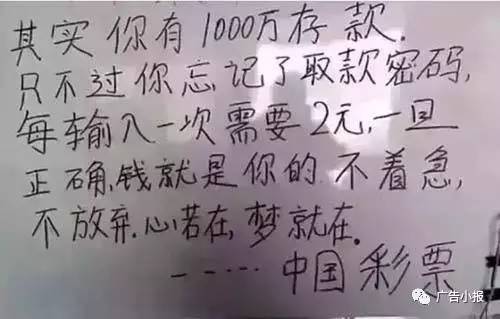 其实你有1000万存款.
只不过你忘记了取款密码,
每输入一次需要2元,一旦
正确,钱就是你的.不着急,
不放弃.心若在,梦就在.
-----中国彩票
广告小报